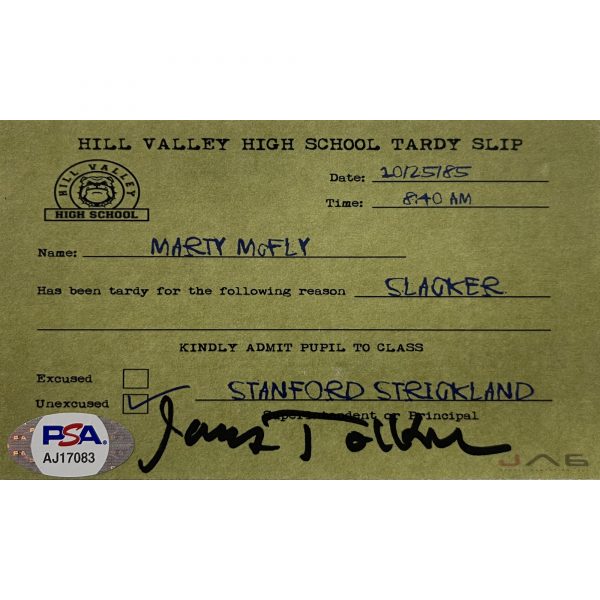 HILL VALLEY HIGH SCHOOL TARDY SLIP
HILL VALLEY
HIGH SCHOOL
Date: 10/25/85
Time: 8:40 AM
Name: MARTY McFLY
Has been tardy for the following reason SLACKER
KINDLY ADMIT PUPIL TO CLASS
Excused
Unexcused
STANFORD STRICKLAND
Superintendent or Principal
James Tolkan
PSA
AJ17083
JAG